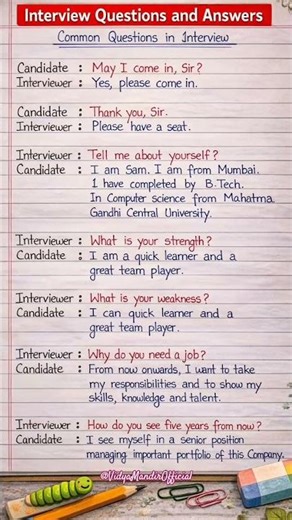 Interview Questions and Answers
Common Questions in Interview
Candidate : May I come in, Sir?
Interviewer : Yes, please come in.
Candidate : Thank you, Sir.
Interviewer : Please have a seat.
Interviewer : Tell me about yourself?
Candidate : I am Sam. I am from Mumbai.
I have completed by B.Tech.
In Computer science from Mahatma
Gandhi Central University.
Interviewer : What is your strength?
Candidate : I am a quick learner and a
great team player.
Interviewer : What is your weakness?
Candidate : I can quick learner and a
great team player.
Interviewer : Why do you need a job?
Candidate : From now onwards, I want to take
my responsibilities and to show my
skills, knowledge and talent.
Interviewer : How do you see five years from now?
Candidate : I see myself in a senior position
managing important portfolio of this Company.
@VidyaMandirOfficial